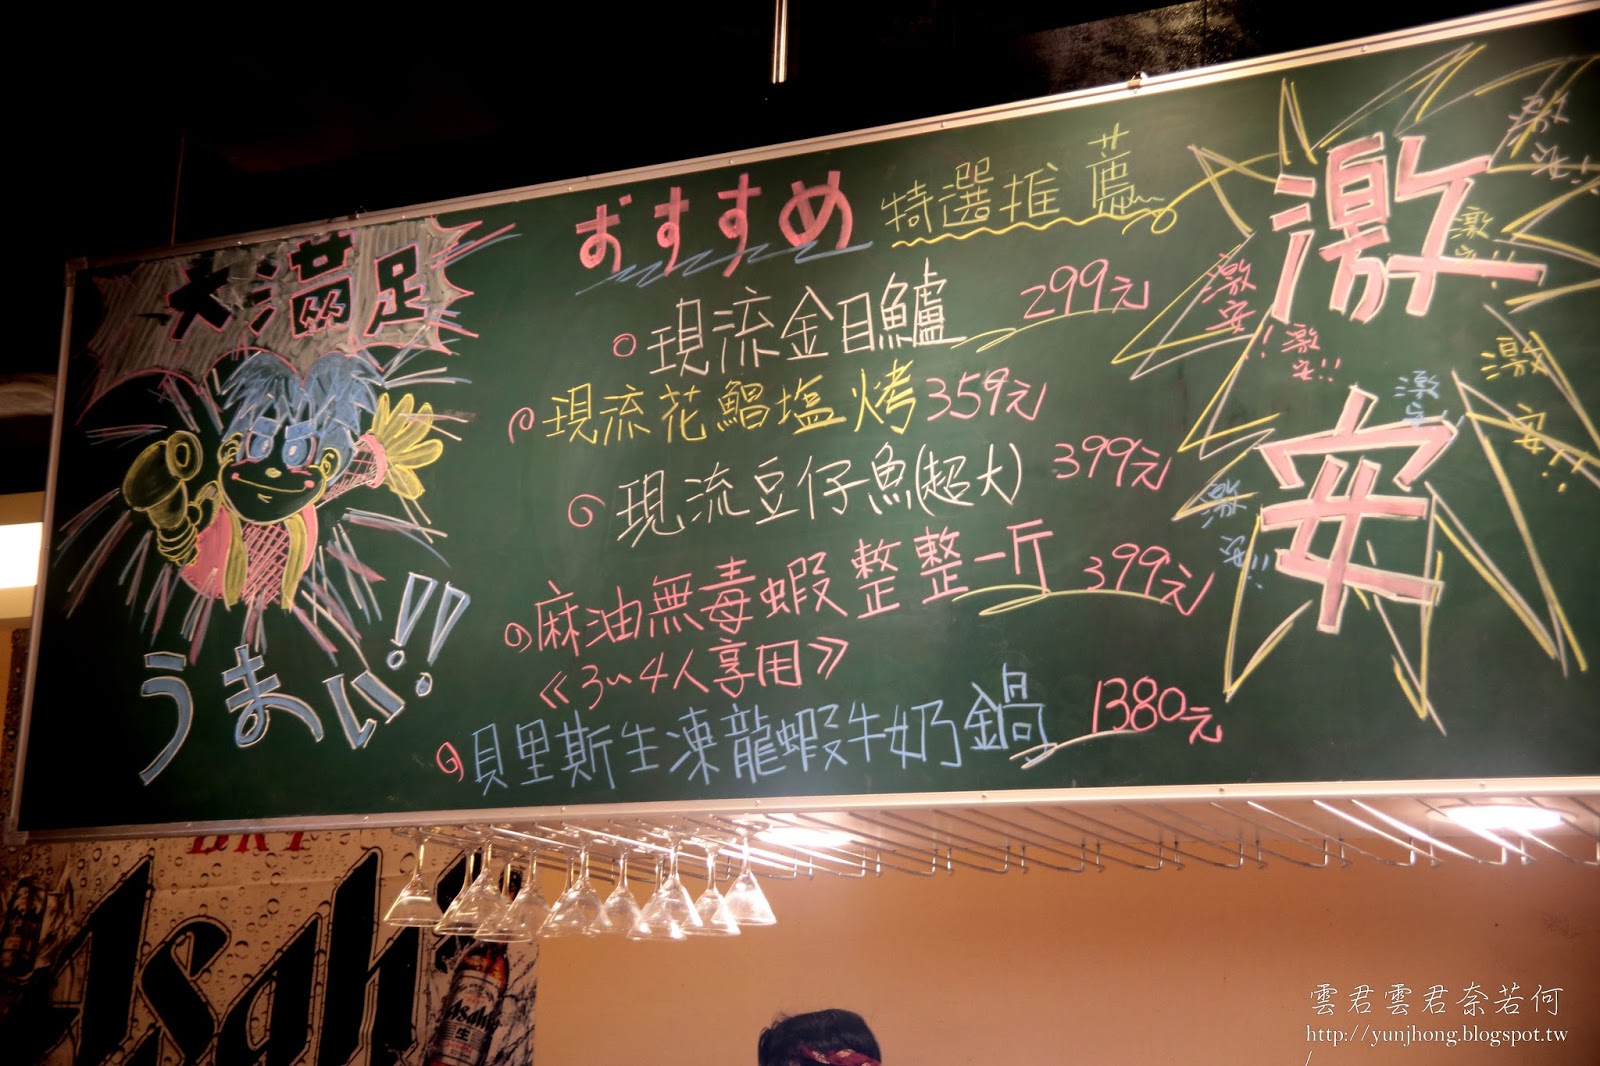 大満足
うまい!!
おすすめ 特選推薦
現流金目鱸 299元
現流花鯧塩烤 359元
現流豆仔魚(超大) 399元
麻油無毒蝦整整一斤 399元
《3~4人享用》
貝里斯生凍龍蝦牛奶鍋 1380元
激安
激安!!
激安!!
激安
!激安!!
激安!
激安!!
激安!!
DRY
Asahi
Asahi
生
雲君雲君奈若何
http://yunjhong.blogspot.tw
/